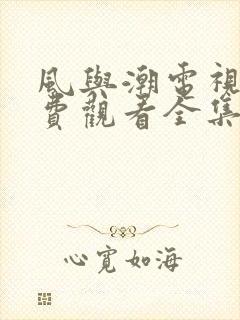 風與潮電視
費觀看全集
心寬如海